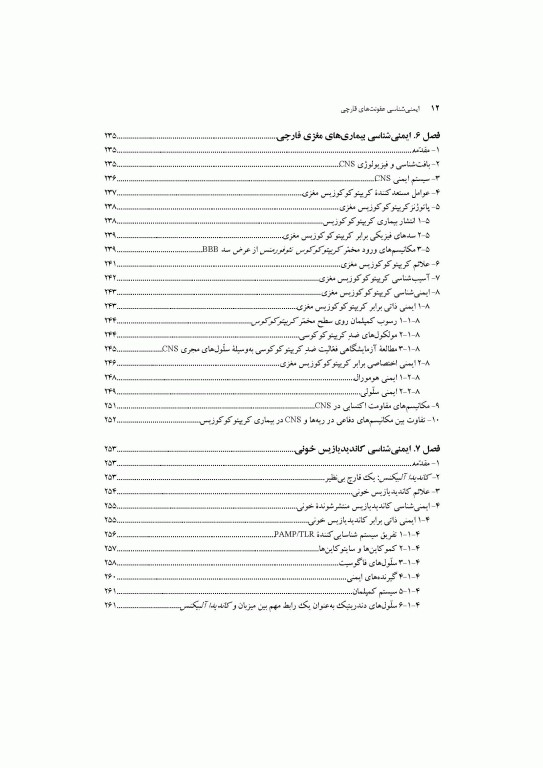 ۱۲ ایمنی‌شناسی عفونت‌های قارچی
فصل ۶. ایمنی‌شناسی بیماری‌های مغزی قارچی ... ۲۳۵
۱- مقدمه ... ۲۳۵
۲- بافت‌شناسی و فیزیولوژی CNS ... ۲۳۵
۳- سیستم ایمنی CNS ... ۲۳۶
۴- عوامل مستعدکنندۀ کریپتوکوکوزیس مغزی ... ۲۳۷
۵- پاتوژنز کریپتوکوکوزیس مغزی ... ۲۳۸
۵-۱ انتشار بیماری کریپتوکوکوزیس ... ۲۳۸
۵-۲ سدهای فیزیکی برابر کریپتوکوکوزیس مغزی ... ۲۳۹
۵-۳ مکانیسم‌های ورود مخمّر کریپتوکوکوس نئوفورمنس از عرض سد BBB ... ۲۳۹
۶- علائم کریپتوکوکوزیس مغزی ... ۲۴۱
۷- آسیب‌شناسی کریپتوکوکوزیس مغزی ... ۲۴۲
۸- ایمنی‌شناسی کریپتوکوکوزیس مغزی ... ۲۴۳
۸-۱ ایمنی ذاتی برابر کریپتوکوکوزیس مغزی ... ۲۴۳
۸-۱-۱ رسوب کمپلمان روی سطح مخمّر کریپتوکوکوس ... ۲۴۴
۸-۱-۲ مولکول‌های ضدِ کریپتوکوکوسی ... ۲۴۴
۸-۱-۳ مطالعۀ آزمایشگاهی فعّالیت ضدِ کریپتوکوکوسی به‌وسیلۀ سلّول‌های مجری CNS ... ۲۴۵
۸-۲ ایمنی اختصاصی برابر کریپتوکوکوزیس مغزی ... ۲۴۶
۸-۲-۱ ایمنی هومورال ... ۲۴۸
۸-۲-۲ ایمنی سلّولی ... ۲۴۹
۹- مکانیسم‌های مقاومت اکتسابی در CNS ... ۲۵۱
۱۰- تفاوت بین مکانیسم‌های دفاعی در ریه‌ها و CNS در بیماری کریپتوکوکوزیس ... ۲۵۲
فصل ۷. ایمنی‌شناسی کاندیدیازیس خونی ... ۲۵۳
۱- مقدمه ... ۲۵۳
۲- کاندیدا آلبیکنس: یک قارچ بی‌نظیر ... ۲۵۳
۳- علائم کاندیدیازیس خونی ... ۲۵۴
۴- ایمنی‌شناسی کاندیدیازیس منتشرشوندۀ خونی ... ۲۵۵
۴-۱ ایمنی ذاتی برابر کاندیدیازیس خونی ... ۲۵۵
۴-۱-۱ تفریق سیستم شناسایی‌کنندۀ PAMP/TLR ... ۲۵۶
۴-۱-۲ کموکاین‌ها و سایتوکاین‌ها ... ۲۵۷
۴-۱-۳ سلّول‌های فاگوسیت ... ۲۵۸
۴-۱-۴ گیرنده‌های ایمنی ... ۲۶۰
۴-۱-۵ سیستم کمپلمان ... ۲۶۱
۴-۱-۶ سلّول‌های دندریتیک به‌عنوان یک رابط مهم بین میزبان و کاندیدا آلبیکنس ... ۲۶۱